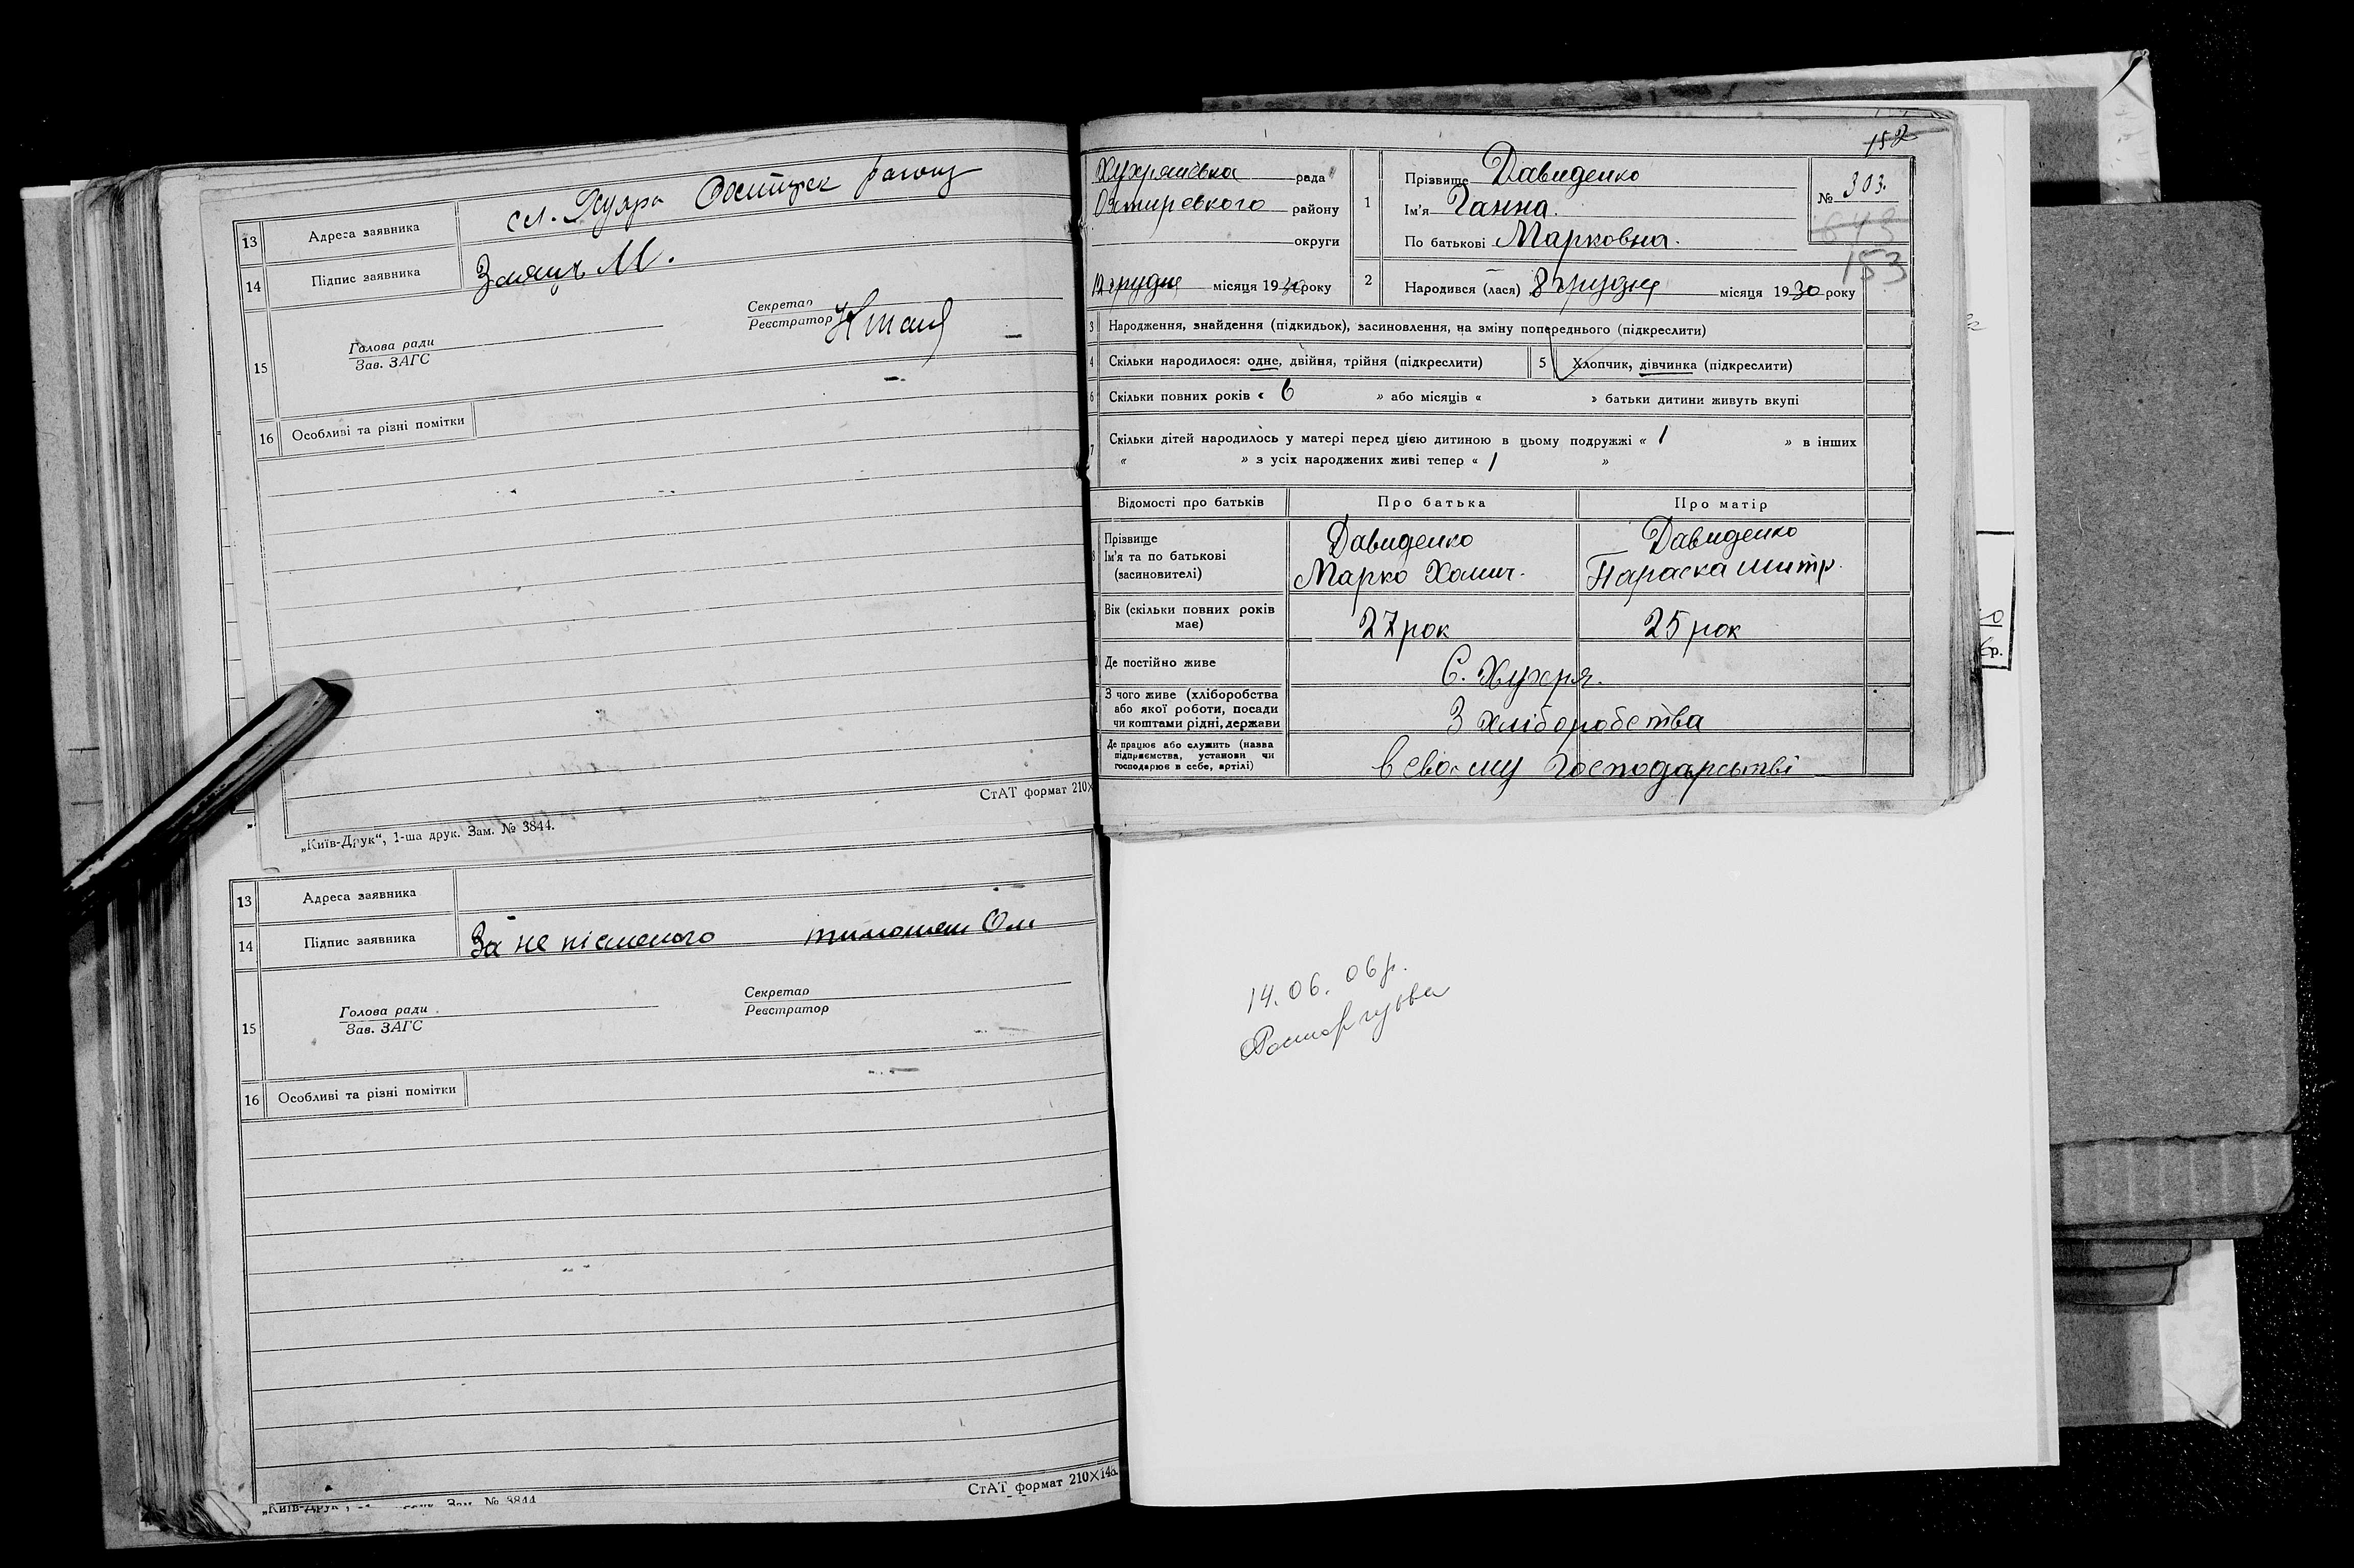 13 Адреса заявника сл. Охтирск району
14 Підпис заявника М.
Секретар
Реєстратор
15 Голова ради
Зав. ЗАГС
16 Особливі та різні помітки
СтАТ формат 210×
„Київ-Друк“, 1-ша друк. Зам. № 3844.
13 Адреса заявника
14 Підпис заявника За не письмено
Секретар
Реєстратор
15 Голова ради
Зав. ЗАГС
16 Особливі та різні помітки
СтАТ формат 210×148.
„Київ-Друк“, Зам. № 3844
152
рада
району
округи
грудня місяця 1930 року
1 Прізвище Давиденко
Ім'я Ганна.
По батькові Марковна.
№ 303.
643
153
2 Народився (лася) 8 грудня місяця 1930 року
3 Народження, знайдення (підкидьок), засиновлення, на зміну попереднього (підкреслити)
4 Скільки народилося: одне, двійня, трійня (підкреслити) 5 Хлопчик, дівчинка (підкреслити)
6 Скільки повних років « 6 » або місяців « » батьки дитини живуть вкупі
7 Скільки дітей народилось у матері перед цією дитиною в цьому подружжі « 1 » в інших
« » з усіх народжених живі тепер « 1 »
Відомості про батьків Про батька Про матір
8 Прізвище Давиденко Давиденко
Ім'я та по батькові
(засновителі) Марко Хомич. Параска
Вік (скільки повних років має) 27 рок 25 рок
Де постійно живе С. Хухря.
З чого живе (хліборобства
або якої роботи, посади
чи коштами рідні, держави З хліборобства
Де працює або служить (назва
підприємства, установи чи
господарює в себе, артілі) в своему господарьстві
14.06.06р.